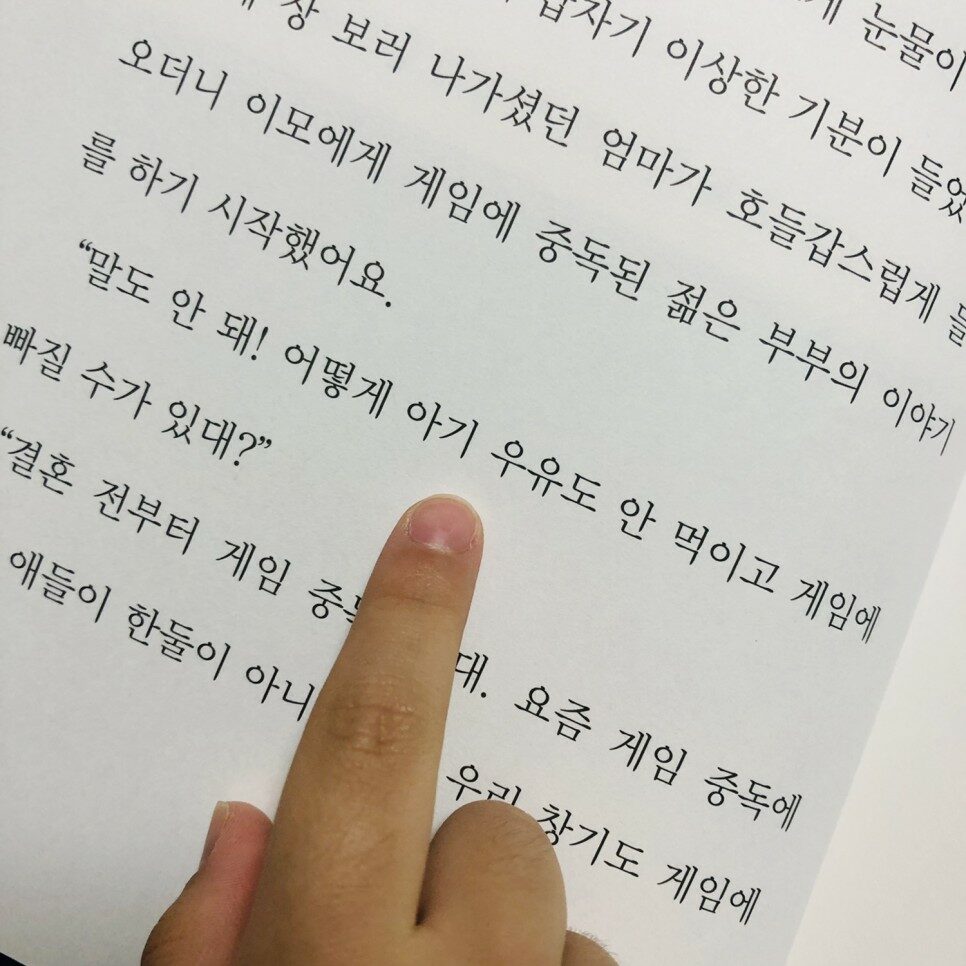 눈물이
갑자기 이상한 기분이 들었
상 보러 나가셨던 엄마가 호들갑스럽게
오더니 이모에게 게임에 중독된 젊은 부부의 이야기
를 하기 시작했어요.
“말도 안 돼! 어떻게 아기 우유도 안 먹이고 게임에
빠질 수가 있대?”
“결혼 전부터 게임 대. 요즘 게임 중독에
애들이 한둘이 아니 우리 창기도 게임에